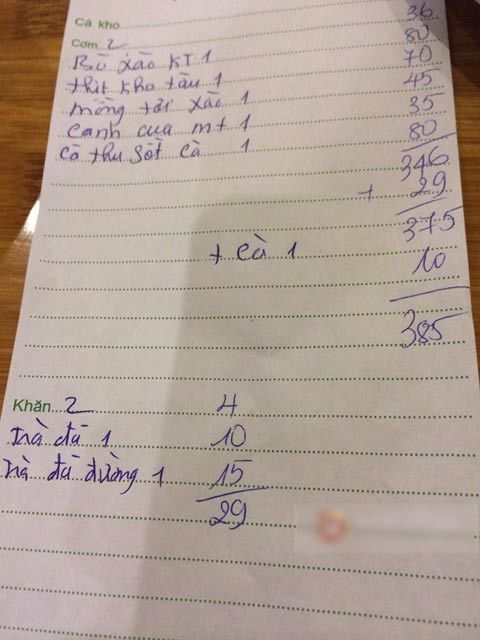 Cá kho
Cơm 2 36
Bò xào KT 1 80
thịt kho tàu 1 70
mồng tơi xào 1 45
canh cua mt 1 35
cá thu sốt cà 1 80
346
+ 29
375
+ cà 1 10
385
Khăn 2 4
trà đá 1 10
trà đá đường 1 15
29